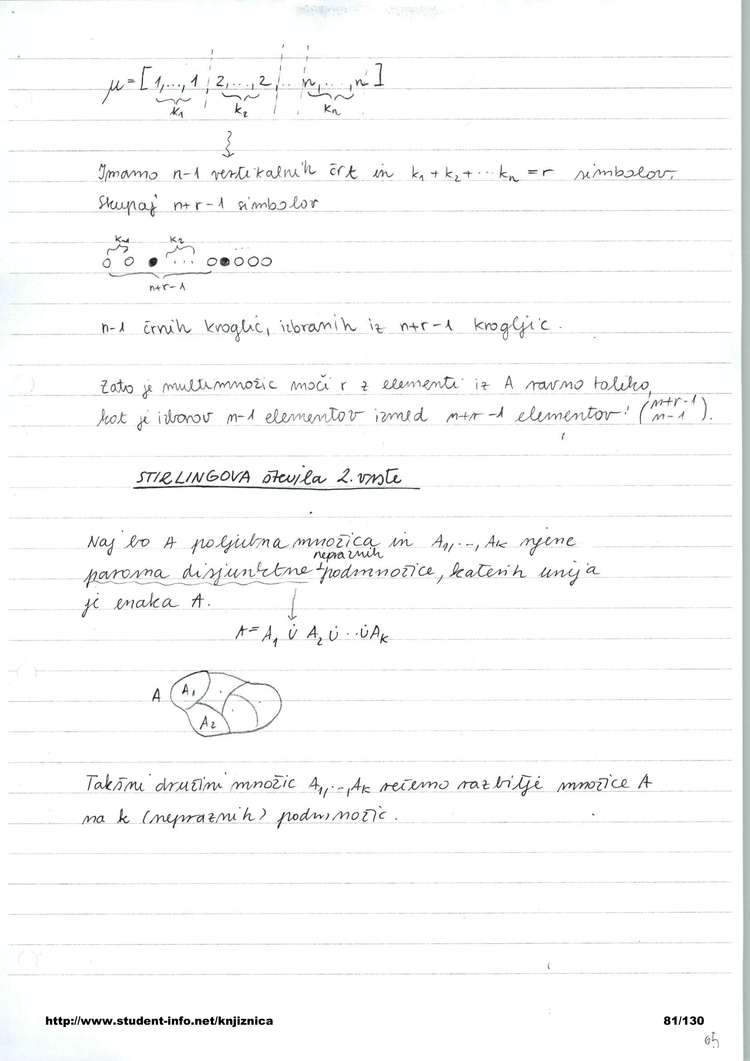 μ = [1,...,1 | 2,...,2 | .. | n,...,n]
k₁ k₂ kₙ
Imamo n-1 vertikalnih črt in k₁ + k₂ + ... kₙ = r simbolov.
Skupaj n+r-1 simbolov
k₁ k₂
...
n+r-1
n-1 črnih kroglic, izbranih iz n+r-1 krogljic.
Zato je multimnožic moči r z elementi iz A ravno toliko,
kot je izborov n-1 elementov izmed n+r-1 elementov: (n+r-1 n-1).
STIRLINGOVA števila 2. vrste
Naj bo A poljubna množica in A₁,..,Aₖ njene
nepraznih
paroma disjunktne podmnožice, katerih unija
je enaka A.
A = A₁ ∪̇ A₂ ∪̇ ... ∪̇ Aₖ
A A₁
A₂
Takšni družini množic A₁,..,Aₖ rečemo razbitje množice A
na k (nepraznih) podmnožic.
http://www.student-info.net/knjiznica 81/130